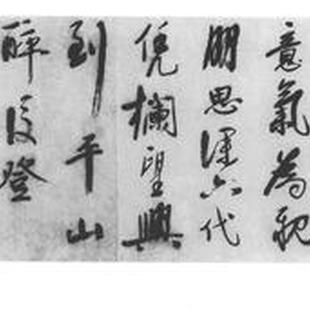 意氣為
朋思六代
凭欄望興
到平山
醉後登